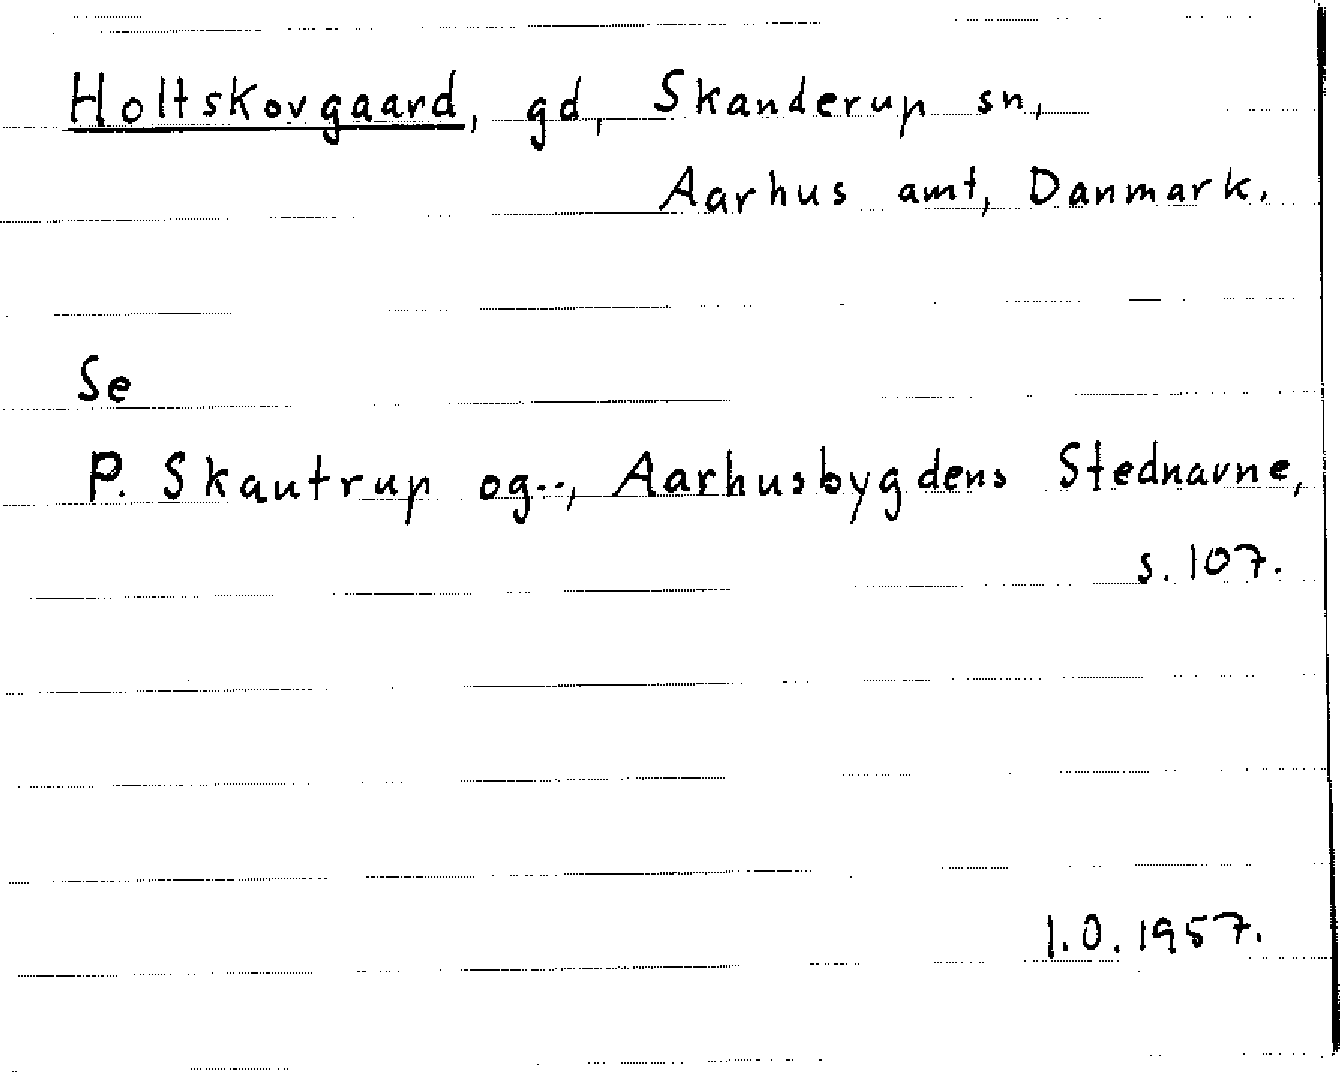 Holtskovgaard, gd, Skanderup sn,
Aarhus amt, Danmark.
Se
P. Skautrup og.., Aarhusbygdens Stednavne,
s. 107.
1.0.1957.